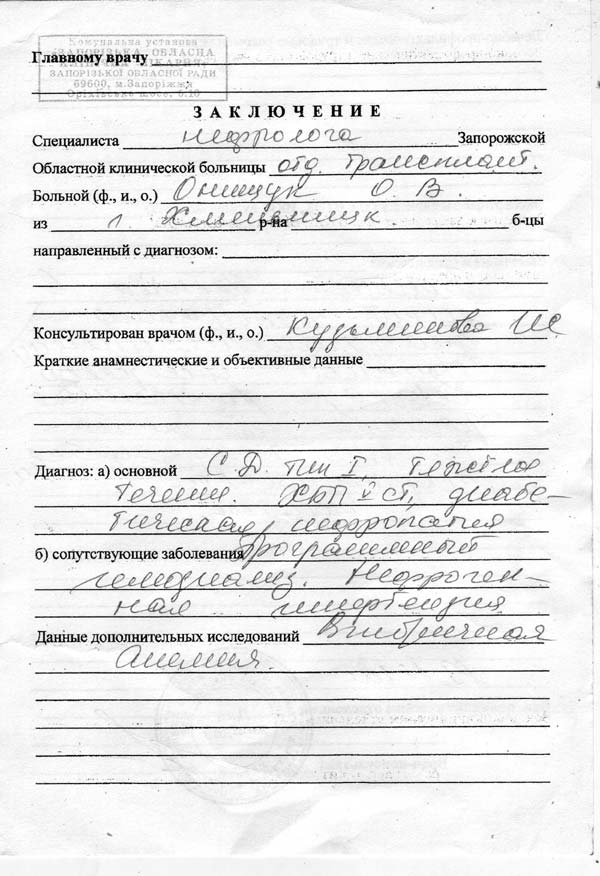 Комунальна установа
«ЗАПОРІЗЬКА ОБЛАСНА
КЛІНІЧНА ЛІКАРНЯ»
ЗАПОРІЗЬКОЇ ОБЛАСНОЇ РАДИ
69600, м.Запоріжжя
Оріхівське шосе, б.10
Главному врачу
ЗАКЛЮЧЕНИЕ
Специалиста нефролога Запорожской
Областной клинической больницы отд. трансплант.
Больной (ф., и., о.) Онищук О. В.
из г. Хмельницк р-на б-цы
направленный с диагнозом:
Консультирован врачом (ф., и., о.) Кузьминова
Краткие анамнестические и объективные данные
Диагноз: а) основной С.Д. тип I, тяжелое
течение. ХБП V ст, диабе-
тическая нефропатия
б) сопутствующие заболевания Программный
гемодиализ. Нефроген-
ная гипертензия
Данные дополнительных исследований Вторичная
Анемия.